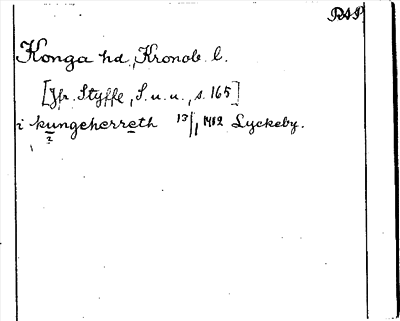 RAP
Konga hd., Kronob. l.
[Jfr. Styffe, S. u. u., s. 165]
i kungeherreth 13/1 1412 Lyckeby.
?